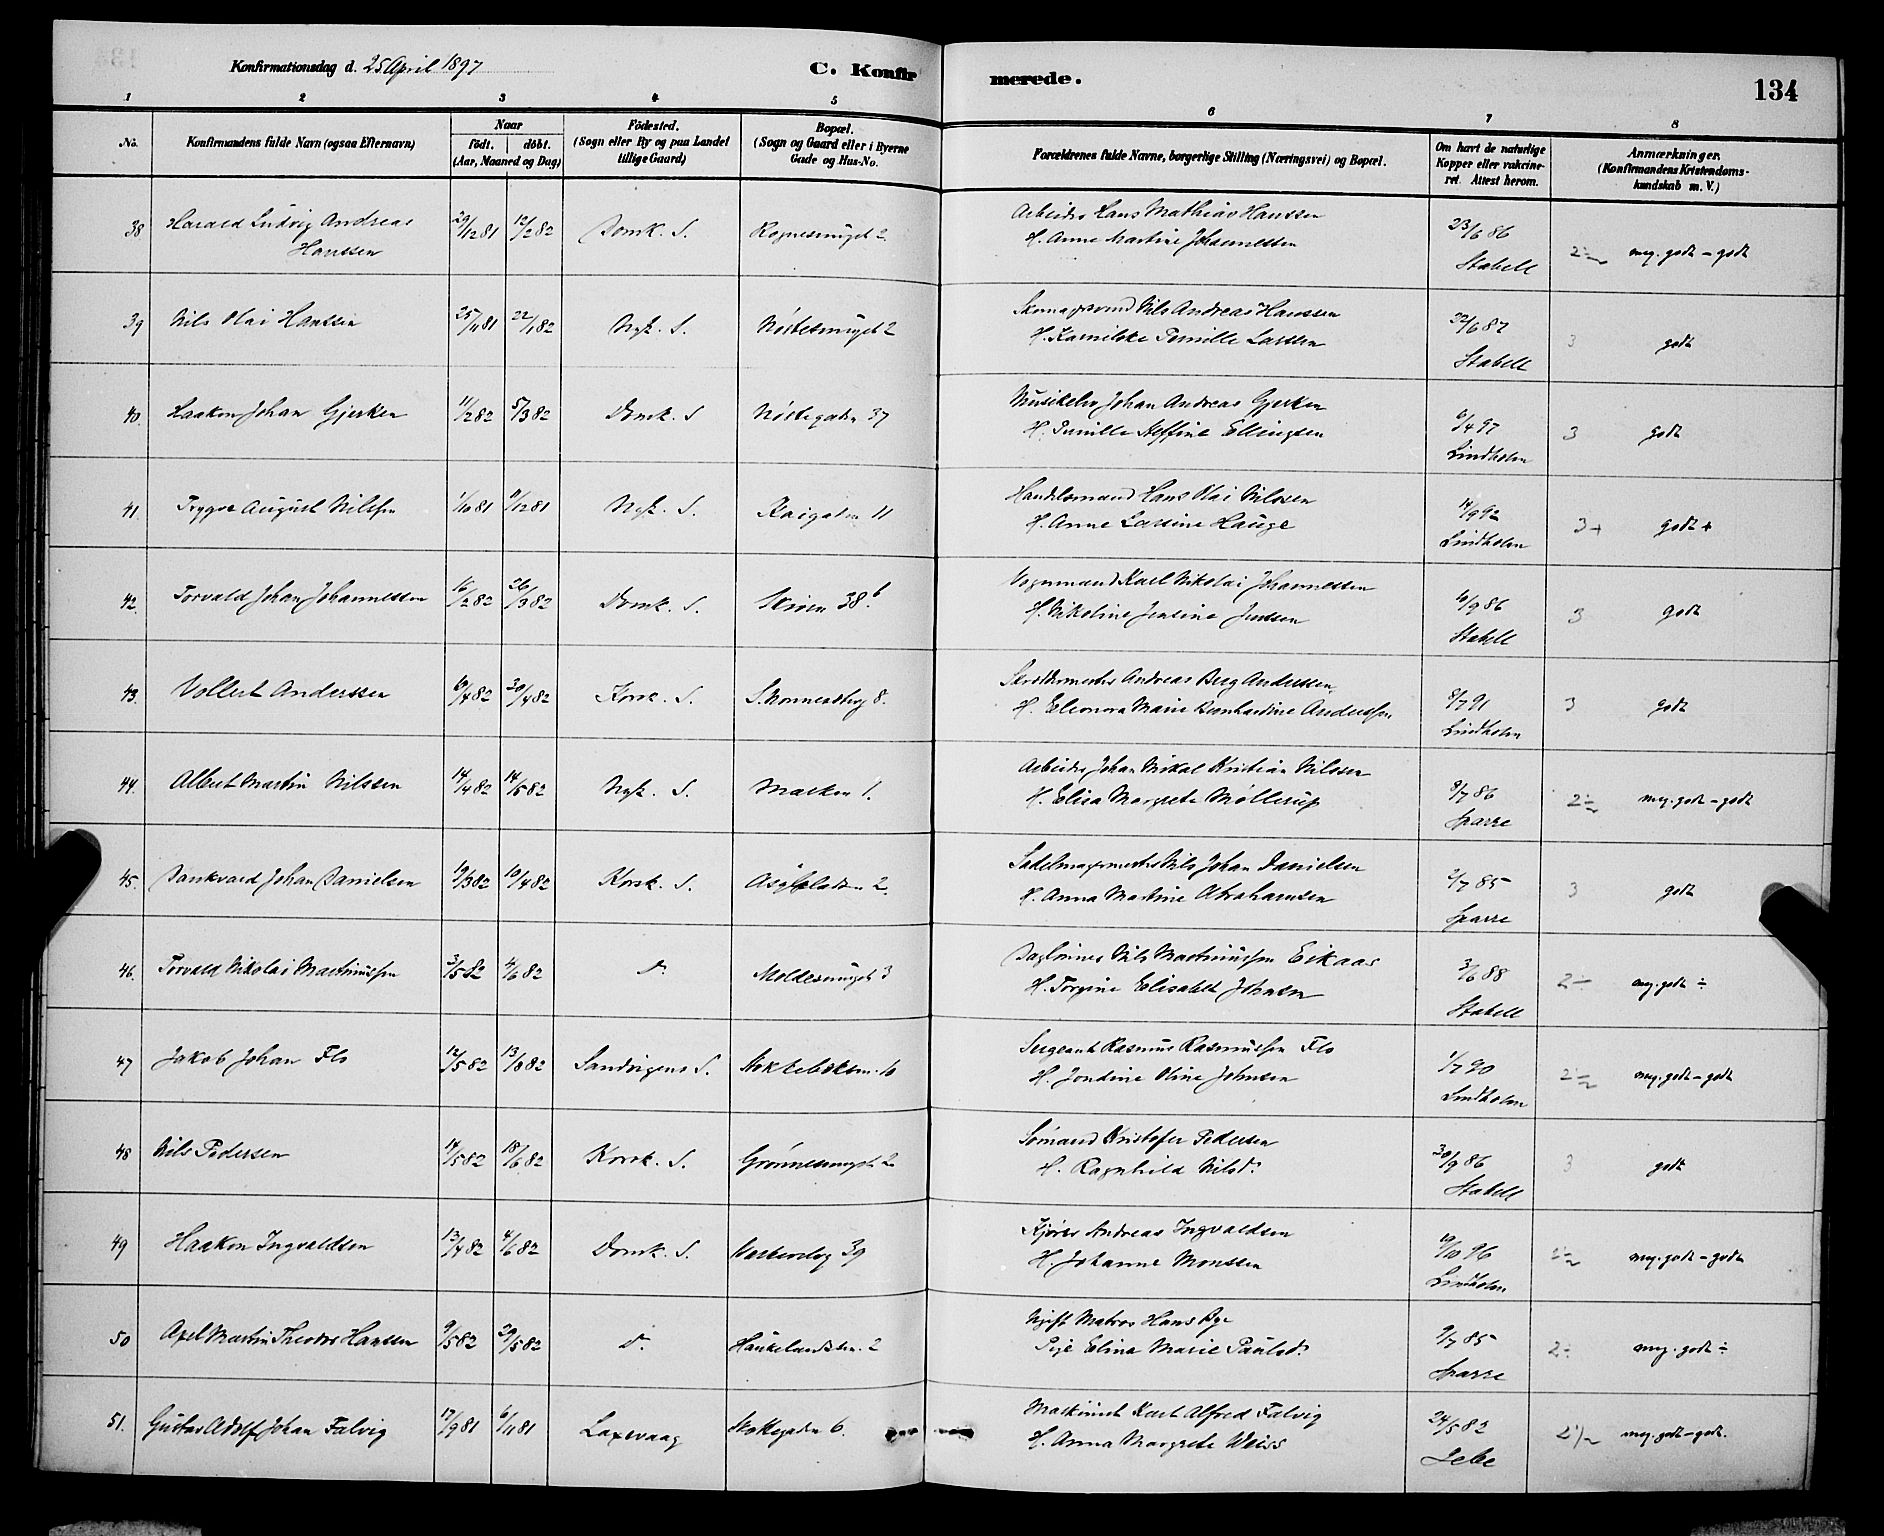 Konfirmationsdag d. 25 April 1897
C. Konfirmerede.
134
1 2 3 4 5 6 7 8
No.
Konfirmandens fulde Navn (ogsaa Efternavn)
Naar
födt. döbt.
(Aar, Maaned og Dag)
Födested.
(Sogn eller By og paa Landet
tillige Gaard)
Bopæl.
(Sogn og Gaard eller i Byerne
Gade og Hus-No.
Forældrenes fulde Navne, borgerlige Stilling (Næringsvei) og Bopæl.
Om havt de naturlige
Kopper eller vakcine-
ret. Attest herom.
Anmærkninger.
(Konfirmandens Kristendoms-
kundskab m. V.)
38 Harald Ludvig Andreas 29/12 81 12/2 82 Domk. S. Rognesmuget 2. Arbeider Hans Mathias Hanssen 23/6 86
Hanssen H. Anne Martine Johannessen Stabell meg. godt - godt
39 Nils Olai Hanssen 25/11 81 22/1 82 Nyk. S. Nöstesmuget 2 Skomagersvend Nils Andreas Hanssen 22/6 87 3 godt
H. Pernille Larssen Stabell
40. Haakon Johan Gjerken 11/2 82 5/3 82 Domk. S Nöstegaden 37 Johan Andreas Gjerken 6/4 97 3 godt
H. Pernille Ellingsen Lindholm
41. Trygve August Nilssen 1/10 81 11/12 81 Nyk. S. Kaigaden 11 Handelsmand Hans Olai Nilssen 14/9 92 3+ godt +
H. Anne Larsine Hauge Lindholm
42. Torvald Johan Johannessen 16/2 82 26/3 82 Domk. S. Skiven 38 b. Vognmand Karl Nikolai Johannessen 10/9 86 3 godt
H. Nikoline Jensine Jenssen Stabell
43. Vollert Anderssen 6/4 82 30/4 82 Korsk. S. 8. Andreas Berg Anderssen 8/7 91 3 godt
H. Eleonora Marie Bernhardine Anderssen Lindholm
44. Albert Martin Nilssen 14/4 82 14/5 82 Nyk. S. Marken 1. Arbeider Johan Mikal Kristian Nilssen 8/7 86 meg. godt - godt
H. Elisa Margrete Möllerup Sparre
45. Dankvard Johan Danielsen 19/3 82 10/4 82 Korsk. S. 2. Sadelmagermester Nils Johan Danielsen 2/7 85 3 godt
H. Anna Martine Abrahamsen Sparre
46. Torvald Nikolai Martinussen 3/5 82 4/6 82 do Moldesmuget 3 Nils Martinussen Eikaas 3/6 88 2÷ meg. godt ÷
H. Torgine Elisabeth Johnsen Stabell
47 Jakob Johan Flo 12/5 82 13/8 82 Sandvigens S. Sergeant Rasmus Rasmussen Flo 1/7 90 meg. godt - godt
H. Jondine Oline Johnsen Lindholm
48 Nils Pedersen 14/5 82 18/6 82 Korsk. S. Grönnesmuget 2 Sömand Kristofer Pedersen 30/9 86 3 godt
H. Ragnhild Nilsd. Stabell
49 Haakon Ingvaldsen 13/4 82 4/6 82 Domk. S. 39 Kjörer Andreas Ingvaldsen 19/10 96 meg. godt - godt
H. Johanne Monssen Lindholm
50 Axel Martin Theodor Hanssen 9/5 82 29/5 82 do 2 Ugift Matros Hans 9/7 85 2÷ meg. godt ÷
Pige Elina Marie Paulsd. Sparre
51. Gustav Adolf Johan Falvig 17/9 81 6/11 81 Laxevaag 6. Maskinist Karl Alfred Falvig 24/5 82 meg. godt - godt.
H. Anna Margrete Weiss